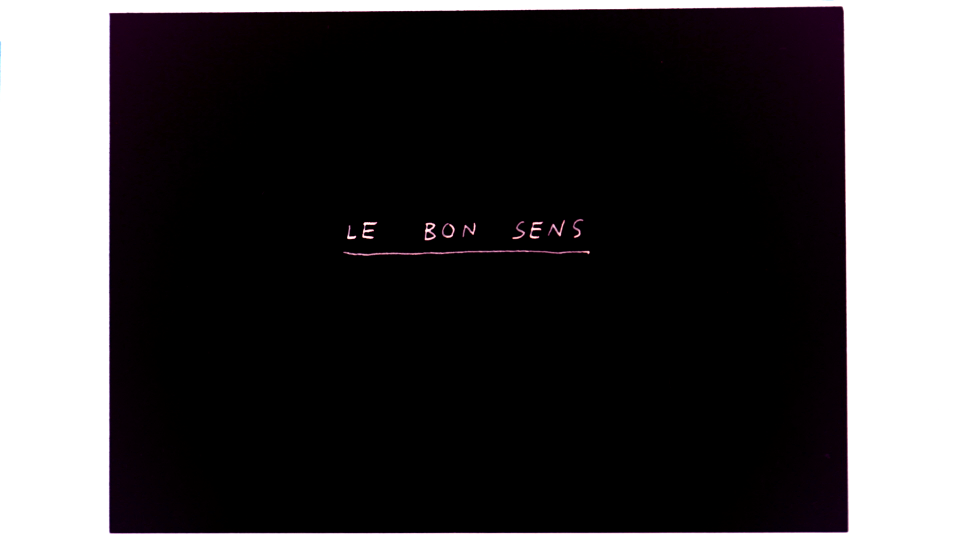 LE BON SENS